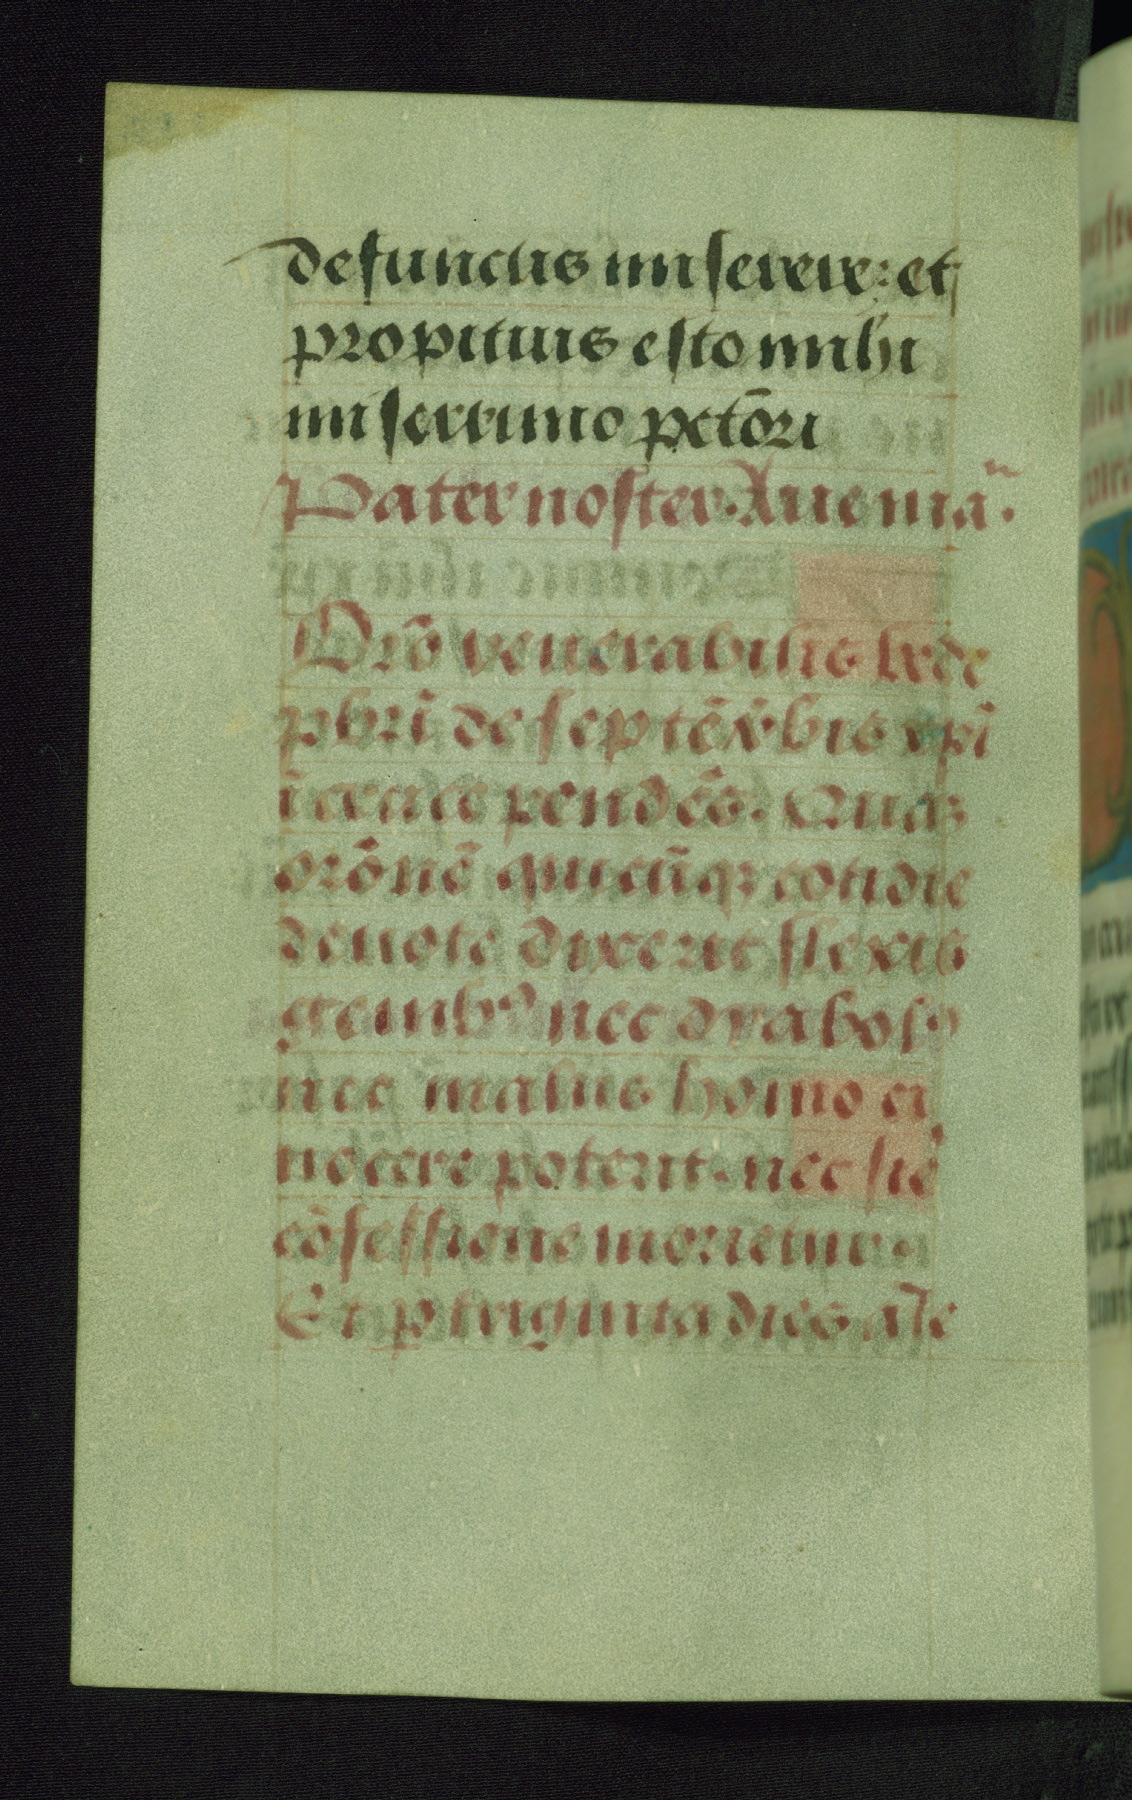 defunctis miserere: et
propitius esto mihi
miserrimo pctōri
Pater noster. Aue mia.
Orō venerabilis bede
pbri de septē vbis xpi
i cruce pendēs. Quaz
orōnē quicūqz cotidie
deuote dixerit flexis
genibꝰ nec dyabolꝰ
nec malus homo ei
nocere poterit. nec sie
cōfessione morietur.
Et p triginta dies ate